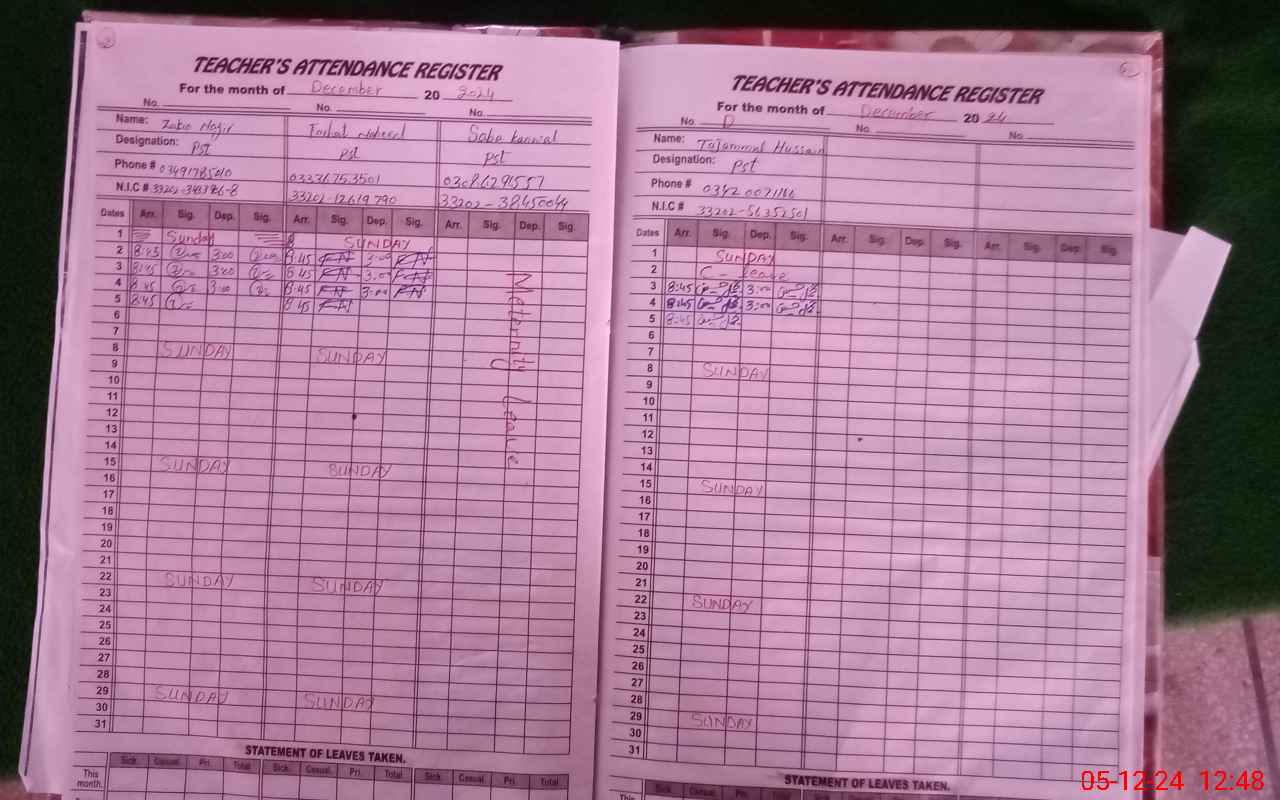 TEACHER'S ATTENDANCE REGISTER
For the month of December 2024
No. No. No.
Name: Farhat Saba Kanwal
Designation: Pst Pst Pst
Phone # 03336753501
N.I.C # 33202-12619790 33202-38450044
Dates Arr. Sig. Dep. Sig. Arr. Sig. Dep. Sig. Arr. Sig. Dep. Sig.
1 Sunday SUNDAY
2 8:45 3:00 8:45 FN 3:00 FN
3 8:45 3:00 8:45 FN 3:00 FN
4 8:45 3:00 8:45 FN 3:00 FN
5 8:45 8:45 FN
Meternity Leave
6
7
8 SUNDAY SUNDAY
9
10
11
12
13
14
15 SUNDAY SUNDAY
16
17
18
19
20
21
22 SUNDAY SUNDAY
23
24
25
26
27
28
29 SUNDAY SUNDAY
30
31
STATEMENT OF LEAVES TAKEN.
Sick. Casual. Pri. Total Sick. Casual. Pri. Total Sick. Casual. Pri. Total
This month.
6
TEACHER'S ATTENDANCE REGISTER
For the month of December 2024
No. No. No.
Name: Tajammal Hussain
Designation: Pst
Phone #
N.I.C # 33202-56352501
Dates Arr. Sig. Dep. Sig. Arr. Sig. Dep. Sig. Arr. Sig. Dep. Sig.
1 SUNDAY
2 C - leave
3 8:45 3:00
4 8:45 3:00
5 8:45
6
7
8 SUNDAY
9
10
11
12
13
14
15 SUNDAY
16
17
18
19
20
21
22 SUNDAY
23
24
25
26
27
28
29 SUNDAY
30
31
STATEMENT OF LEAVES TAKEN.
Sick. Casual. Pri. Total Sick. Casual. Pri. Total
This
05-12-24 12:48